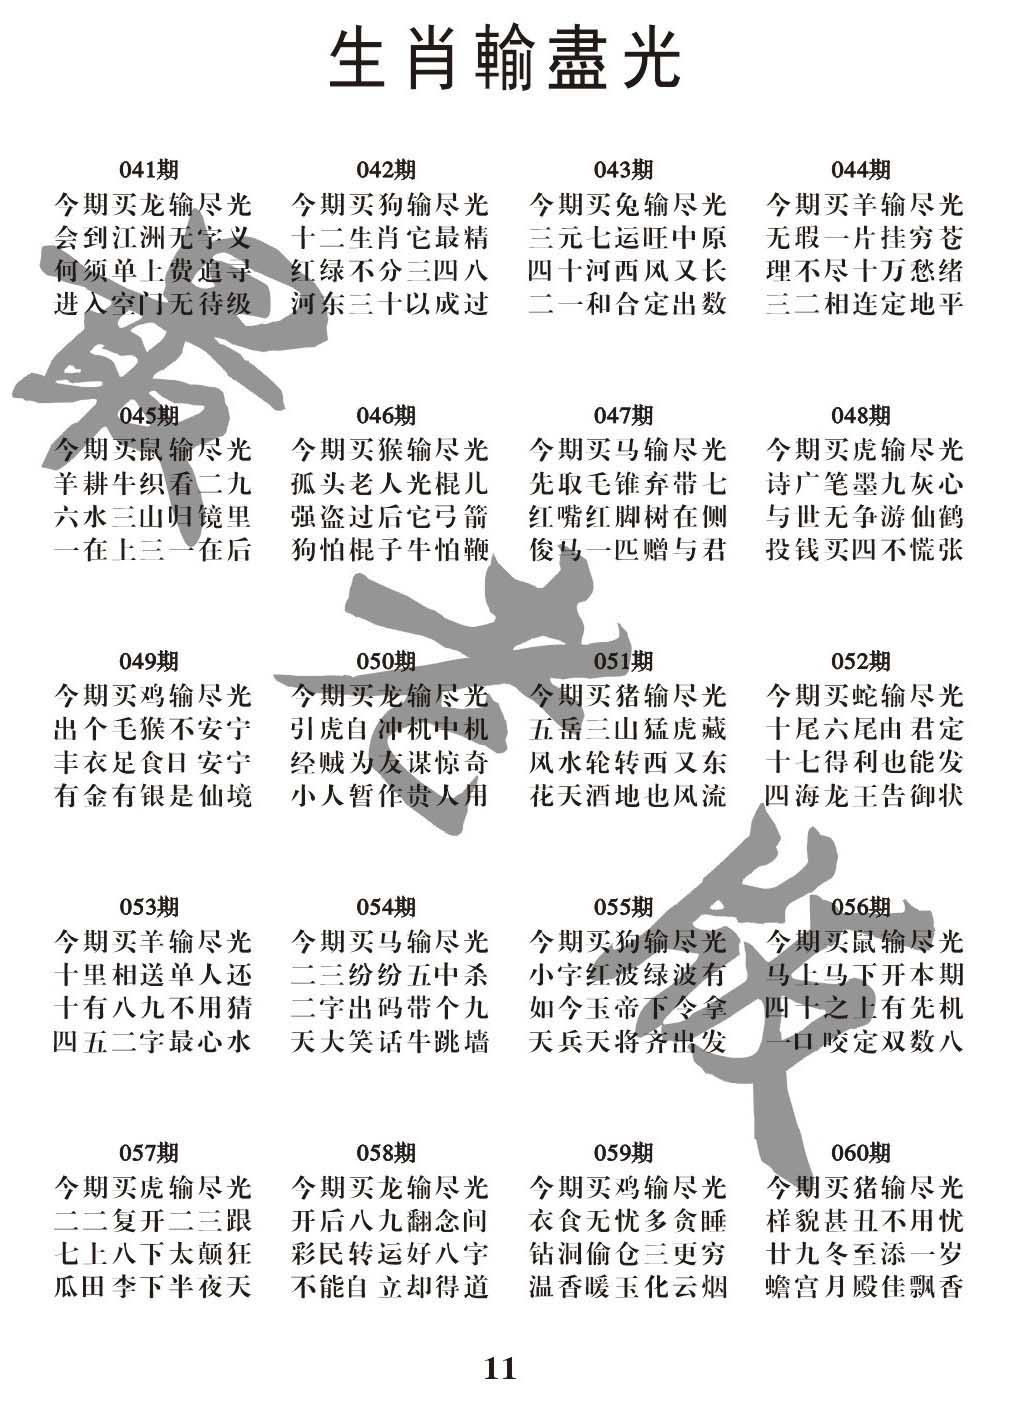 生肖輸盡光
041期
今期买龙输尽光
会到江洲无字义
何须单上费追寻
进入空门无待级
042期
今期买狗输尽光
十二生肖它最精
红绿不分三四八
河东三十以成过
043期
今期买兔输尽光
三元七运旺中原
四十河西风又长
二一和合定出数
044期
今期买羊输尽光
无瑕一片挂穷苍
理不尽十万愁绪
三二相连定地平
045期
今期买鼠输尽光
羊耕牛织看二九
六水三山归镜里
一在上三一在后
046期
今期买猴输尽光
孤头老人光棍儿
强盗过后它弓箭
狗怕棍子牛怕鞭
047期
今期买马输尽光
先取毛锥弃带七
红嘴红脚树在侧
俊马一匹赠与君
048期
今期买虎输尽光
诗广笔墨九灰心
与世无争游仙鹤
投钱买四不慌张
049期
今期买鸡输尽光
出个毛猴不安宁
丰衣足食日安宁
有金有银是仙境
050期
今期买龙输尽光
引虎自冲机中机
经贼为友谋惊奇
小人暂作贵人用
051期
今期买猪输尽光
五岳三山猛虎藏
风水轮转西又东
花天酒地也风流
052期
今期买蛇输尽光
十尾六尾由君定
十七得利也能发
四海龙王告御状
053期
今期买羊输尽光
十里相送单人还
十有八九不用猜
四五二字最心水
054期
今期买马输尽光
二三纷纷五中杀
二字出码带个九
天大笑话牛跳墙
055期
今期买狗输尽光
小字红波绿波有
如今玉帝下令拿
天兵天将齐出发
056期
今期买鼠输尽光
马上马下开本期
四十之上有先机
一口咬定双数八
057期
今期买虎输尽光
二二复开二三跟
七上八下太颠狂
瓜田李下半夜天
058期
今期买龙输尽光
开后八九翻念间
彩民转运好八字
不能自立却得道
059期
今期买鸡输尽光
衣食无忧多贪睡
钻洞偷仓三更穷
温香暖玉化云烟
060期
今期买猪输尽光
样貌甚丑不用忧
廿九冬至添一岁
蟾宫月殿佳飘香
11